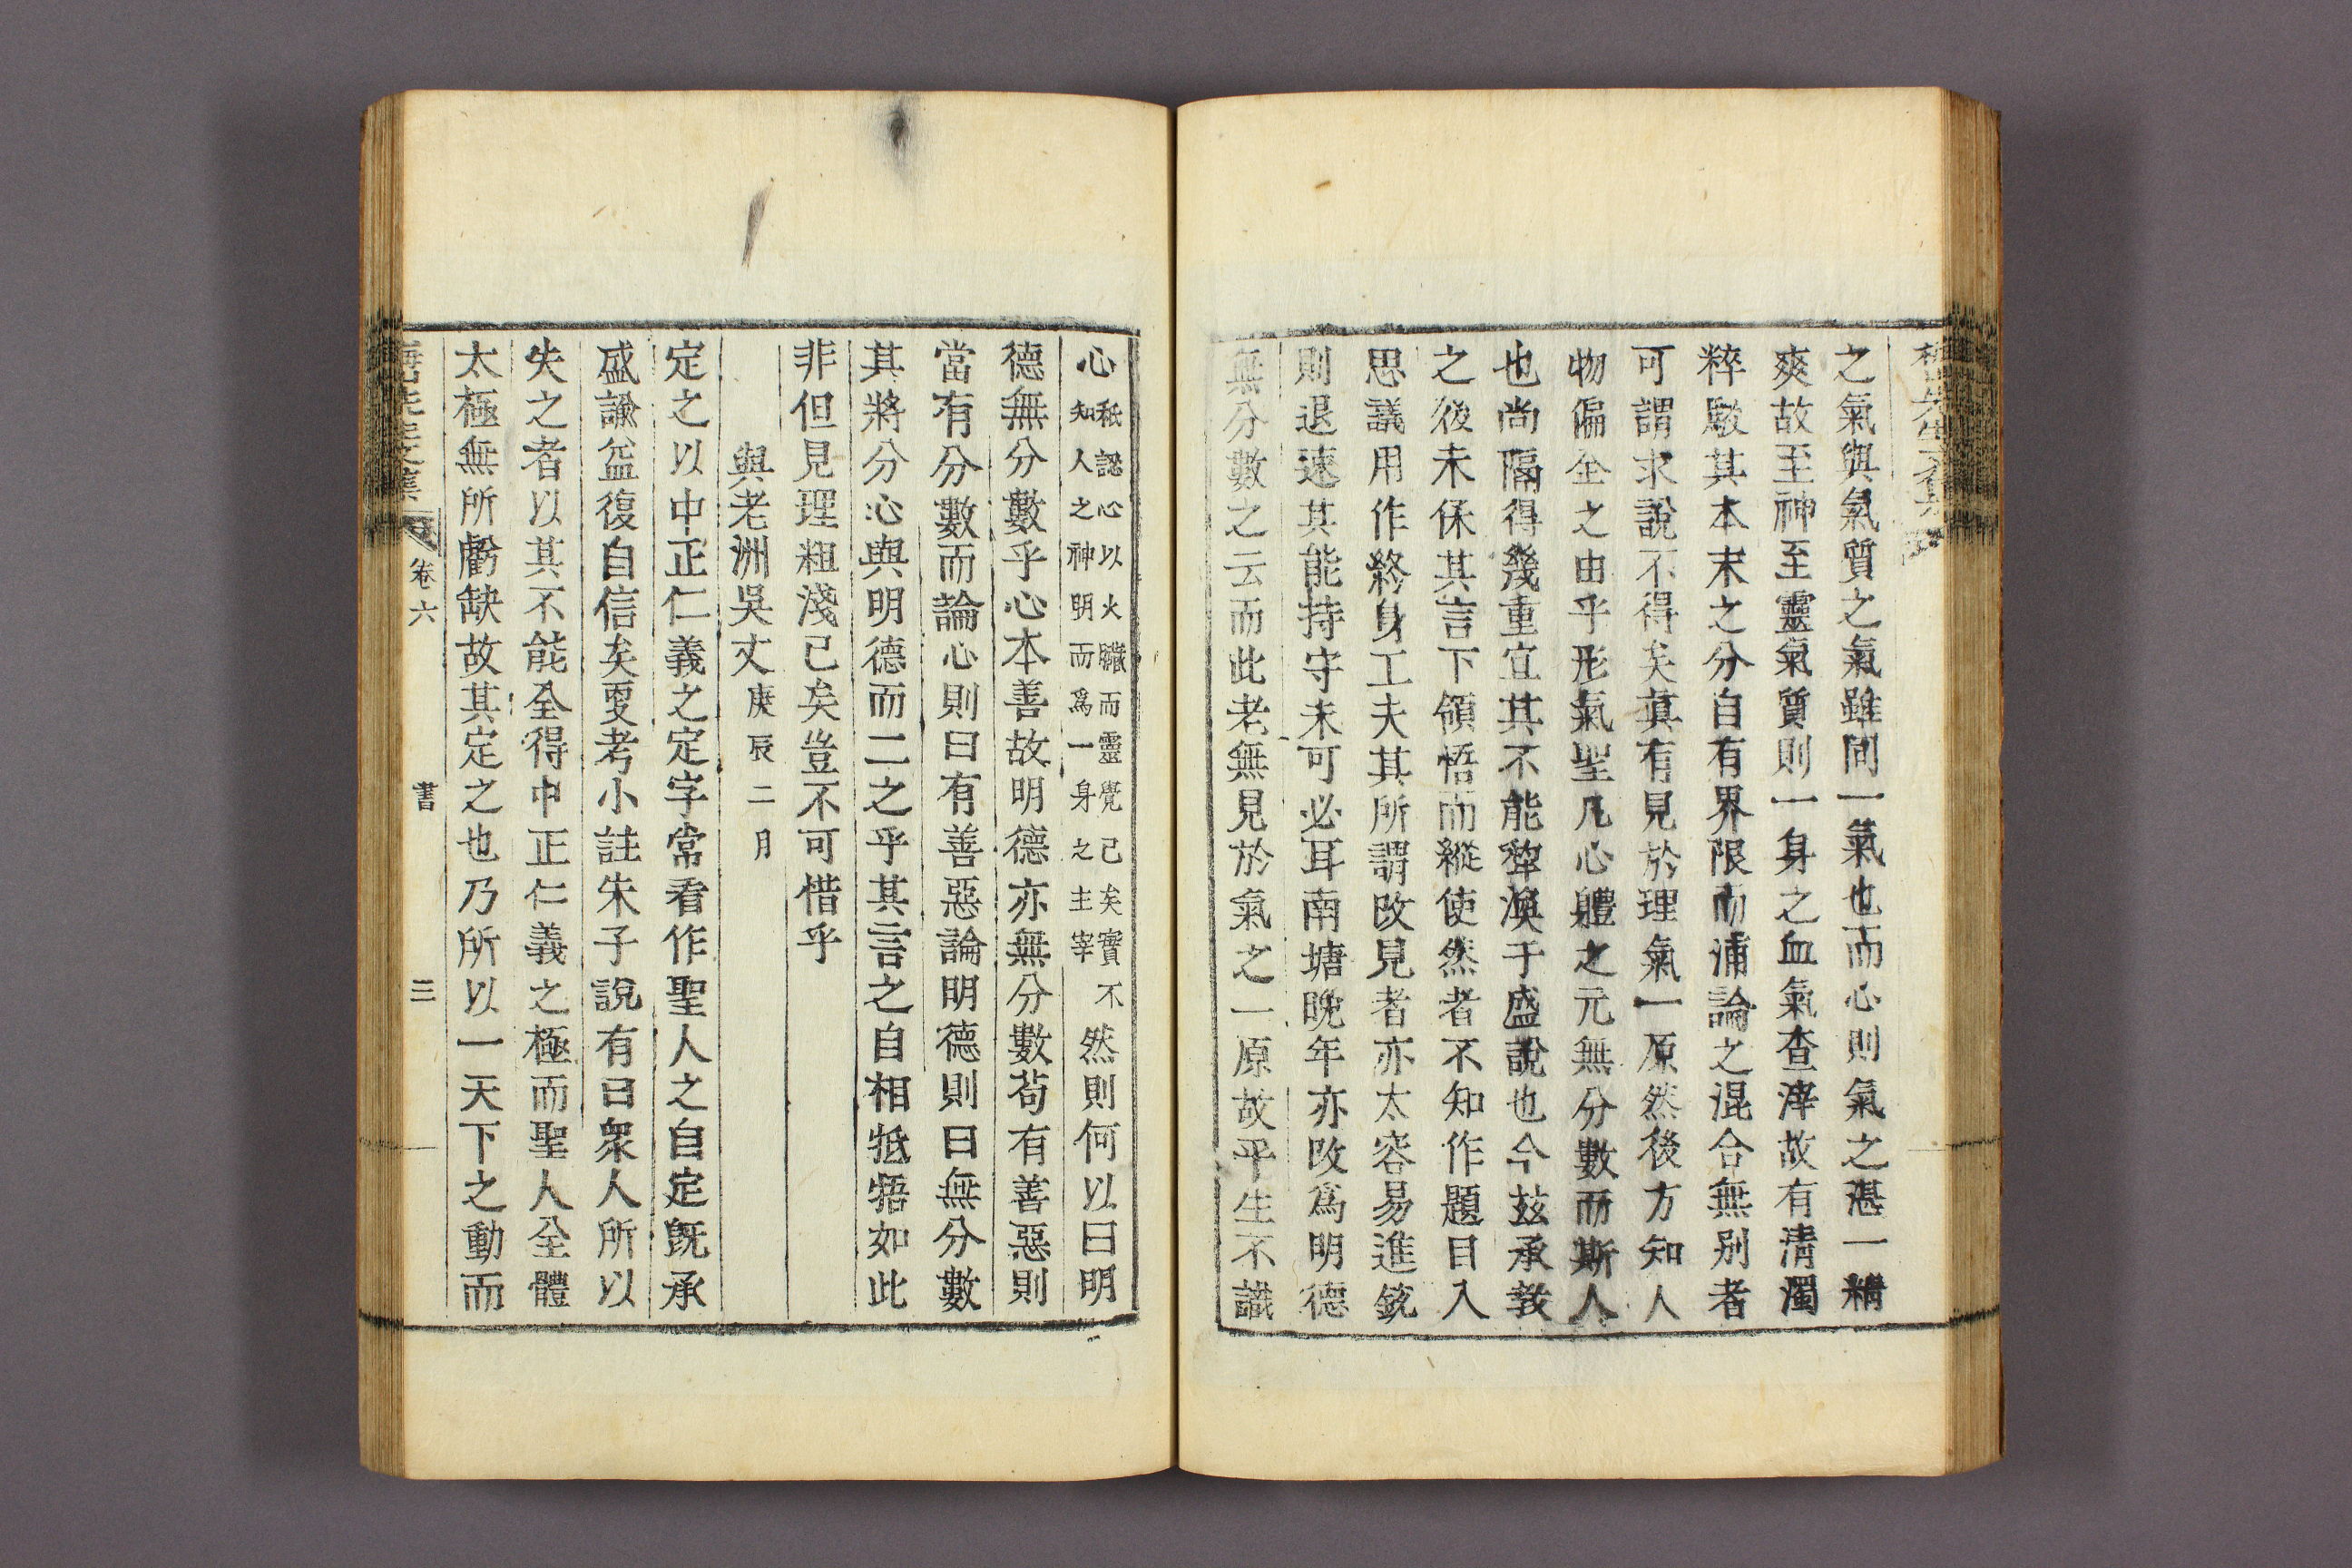 之氣與氣質之氣雖同一氣也而心則氣之湛一精
爽故至神至靈氣質則一身之血氣查滓故有淸濁
粹駁其本末之分自有界限而浦論之混合無別者
可謂求說不得矣眞有見於理氣一原然後方知人
物偏全之由乎形氣聖凡心軆之元無分數而斯人
也尙隔得幾重宜其不能犂渙于盛說也今玆承敎
之後未保其言下領悟而縱使然者不知作題目入
思議用作終身工夫其所謂改見者亦太容易進銳
則退速其能持守未可必耳南塘晩年亦改爲明德
無分數之云而此老無見於氣之一原故平生不識
心秖認心以火臟而靈覺已矣實不
知人之神明而爲一身之主宰然則何以曰明
德無分數乎心本善故明德亦無分數苟有善惡則
當有分數而論心則曰有善惡論明德則曰無分數
其將分心與明德而二之乎其言之自相牴牾如此
非但見理粗淺已矣豈不可惜乎
與老洲吳丈庚辰二月
定之以中正仁義之定字常看作聖人之自定旣承
盛諭益復自信矣更考小註朱子說有曰衆人所以
失之者以其不能全得中正仁義之極而聖人全體
太極無所虧缺故其定之也乃所以一天下之動而
先生文集 卷六 書 三